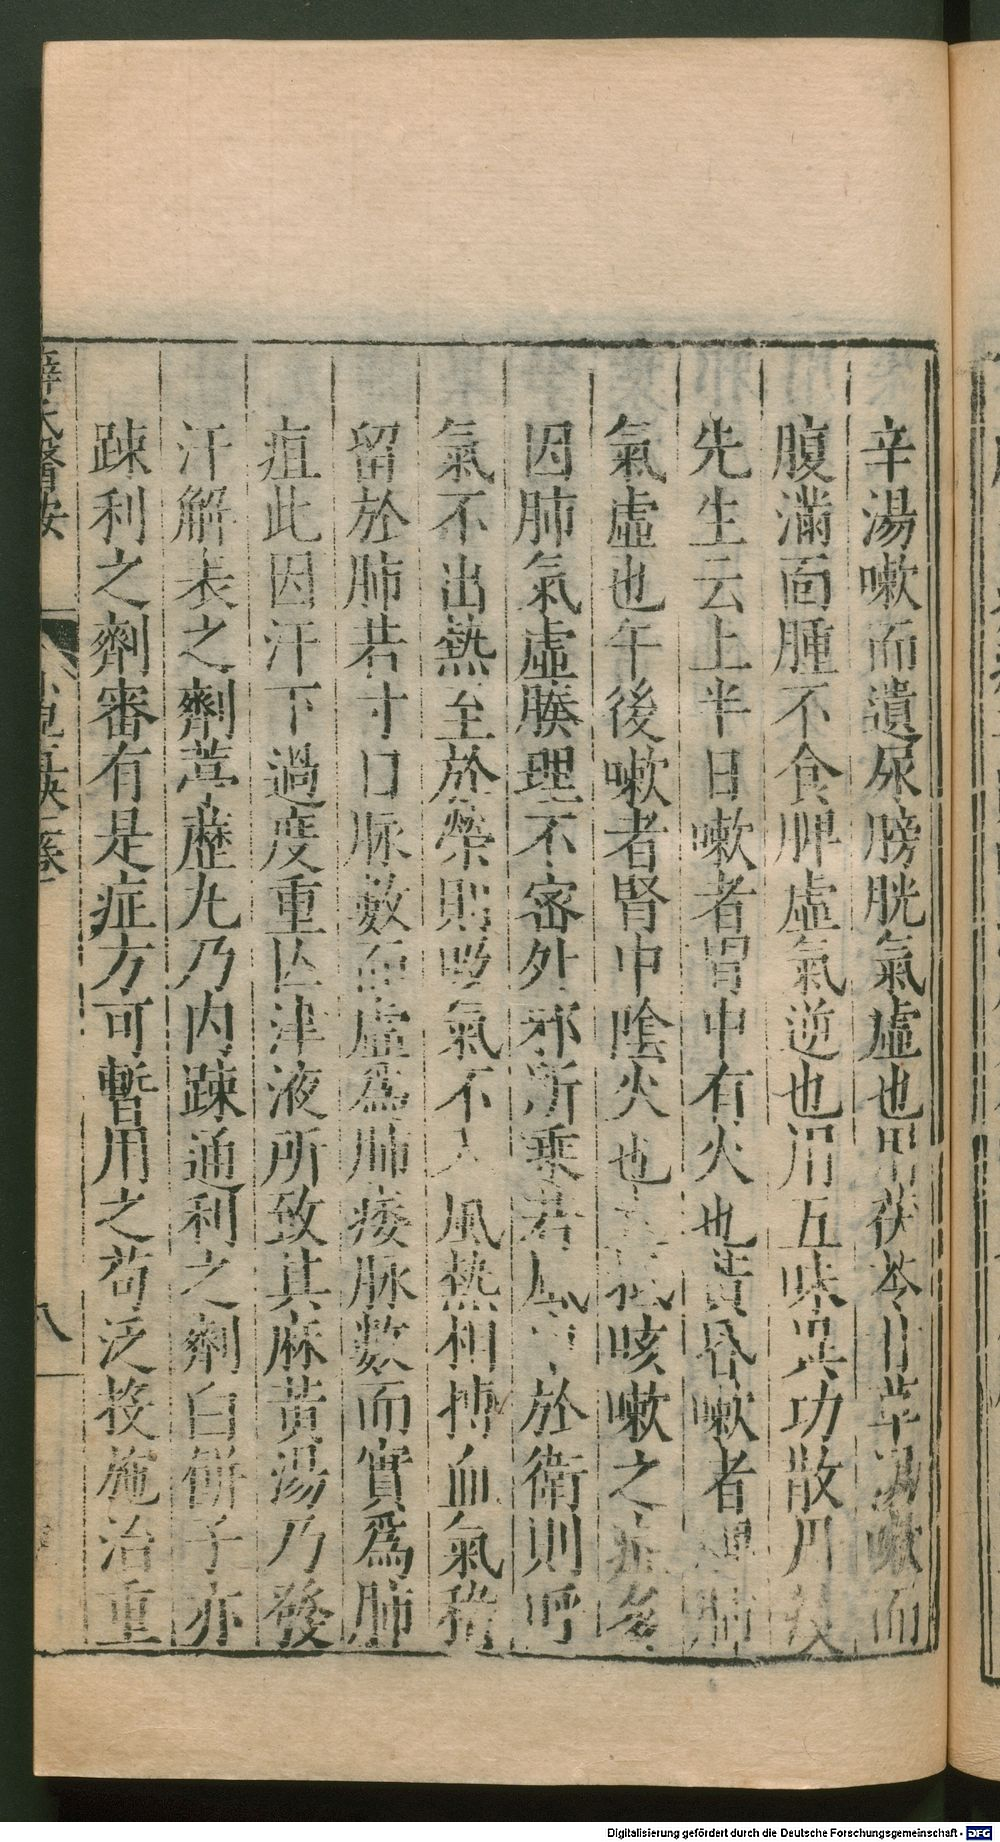 辛湯嗽而遺尿膀胱氣虛也用茯苓甘草湯嗽而
腹滿面腫不食脾虛氣逆也用五味異功散丹溪
先生云上半日嗽者胃中有火也黃昏嗽者脾肺
氣虛也午後嗽者腎中陰火也咳嗽之症多
因肺氣虛腠理不密外邪所乗若風於衛則呼
氣不出熱至於榮則吸氣不入風熱相搏血氣稽
留於肺若寸口脉數而虛爲肺痿脉數而實爲肺
疽此因汗下過度重亾津液所致其麻黃湯乃發
汗解表之劑葶藶丸乃内踈通利之劑白餅子亦
踈利之劑審有是症方可暫用之苟泛投施治重
薛氏醫按
八
Digitalisierung gefördert durch die Deutsche Forschungsgemeinschaft - DFG